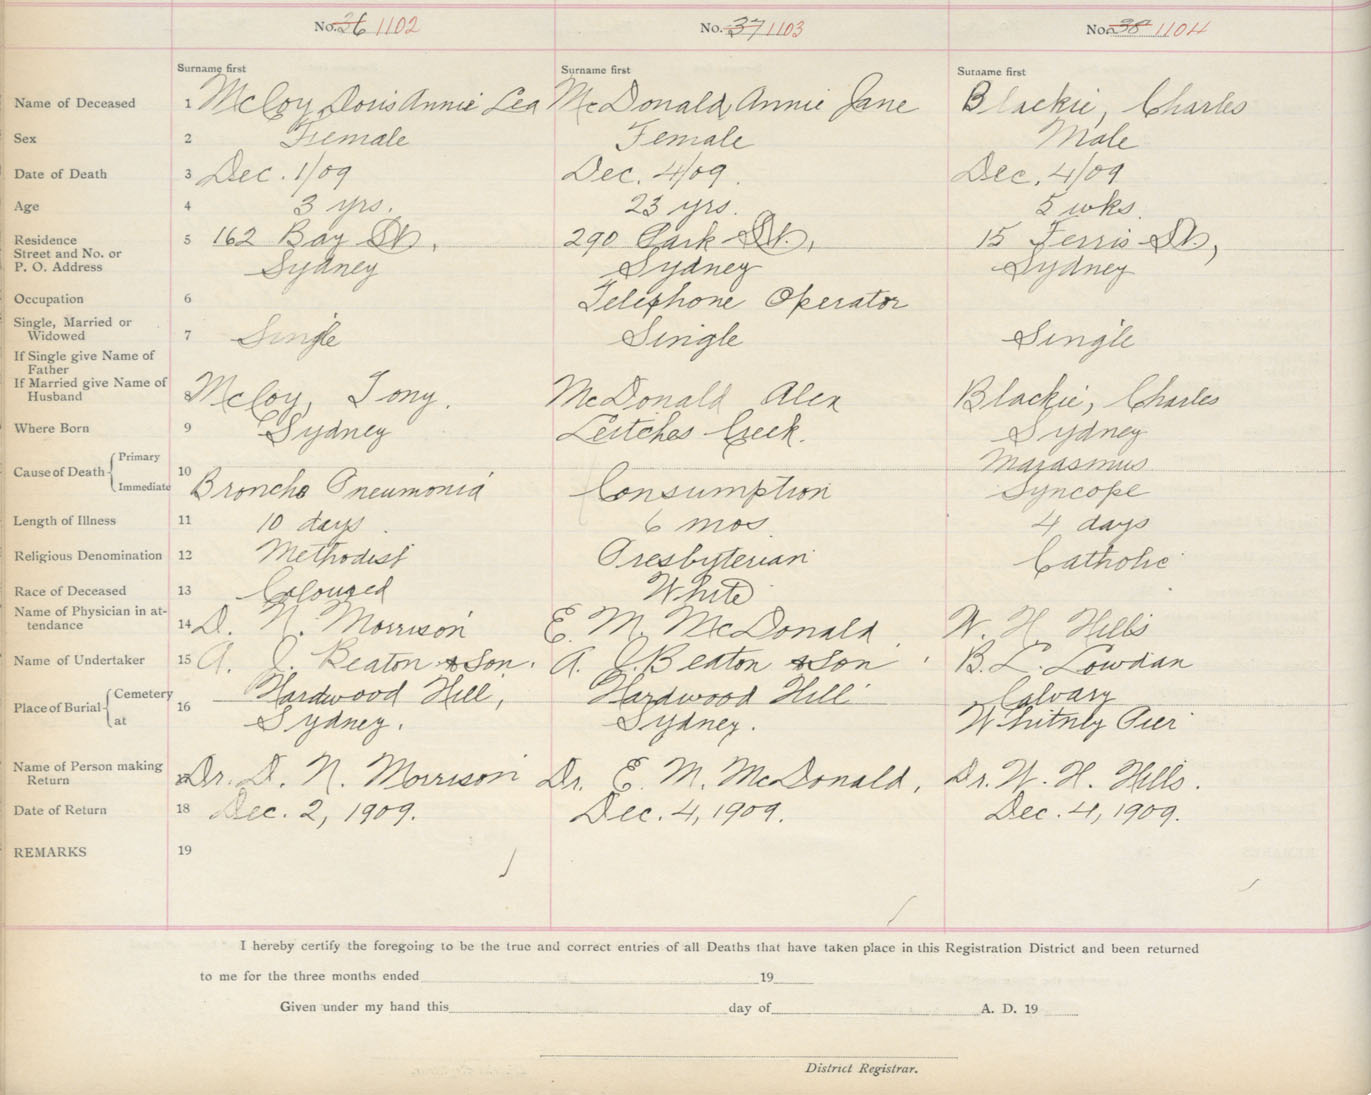 No. 36 1102 No. 37 1103 No. 38 1104
Surname first Surname first Surname first
Name of Deceased 1 McCoy, Doris Annie Lea McDonald, Annie Jane Blackie, Charles
Sex 2 Female Female Male
Date of Death 3 Dec. 1/09 Dec. 4/09. Dec. 4/09
Age 4 3 yrs. 23 yrs. 5 wks.
Residence 5 162 Bay St., 290 Park St., 15 Ferris St.,
Street and No. or
P. O. Address Sydney Sydney Sydney
Occupation 6 Telephone Operator
Single, Married or
Widowed 7 Single Single Single
If Single give Name of
Father
If Married give Name of
Husband 8 McCoy, Tony. McDonald Alex Blackie, Charles
Where Born 9 Sydney Leitches Creek. Sydney
Cause of Death Primary 10 Marasmus
Immediate Broncho Pneumonia Consumption Syncope
Length of Illness 11 10 days 6 mos 4 days
Religious Denomination 12 Methodist Presbyterian Catholic
Race of Deceased 13 Coloured White
Name of Physician in at-
tendance 14 D. N. Morrison E. M. McDonald W. H. Hills
Name of Undertaker 15 A. J. Beaton & Son. A. J. Beaton & Son. B. L. Lowdan
Place of Burial Cemetery 16 Hardwood Hill, Hardwood Hill Calvary
at Sydney. Sydney. Whitney Pier
Name of Person making
Return 17 Dr. D. N. Morrison Dr. E. M. McDonald, Dr. W. H. Hills.
Date of Return 18 Dec. 2, 1909. Dec. 4, 1909. Dec. 4, 1909.
REMARKS 19
I hereby certify the foregoing to be the true and correct entries of all Deaths that have taken place in this Registration District and been returned
to me for the three months ended 19
Given under my hand this day of A. D. 19
District Registrar.